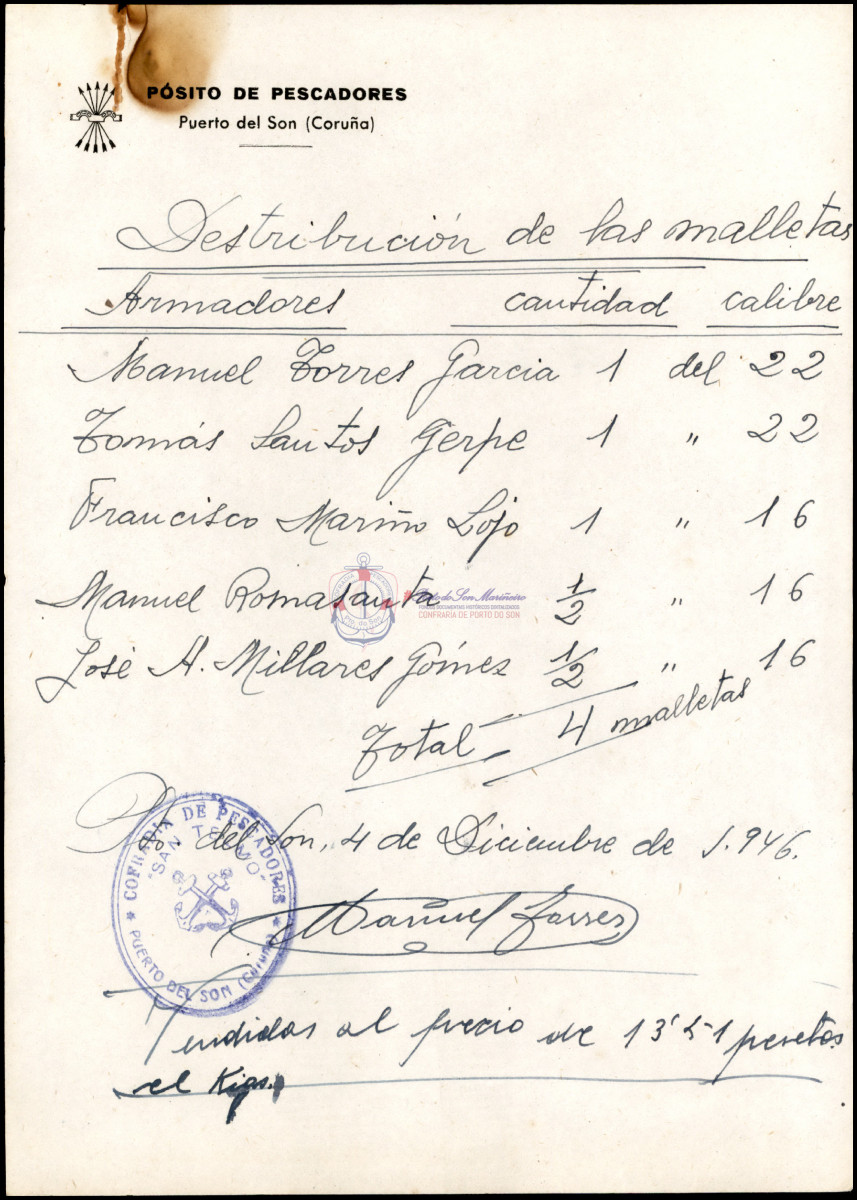 PÓSITO DE PESCADORES
Puerto del Son (Coruña)
Destribución de las malletas
Armadores cantidad calibre
Manuel Torres Garcia 1 del 22
Tomás Santos Gerpe 1 " 22
Francisco Mariño Lojo 1 " 16
Manuel Romasanta 1/2 " 16
José A. Millares Gómez 1/2 " 16
Total 4 malletas
Pto. del Son, 4 de Diciembre de 1.946.
COFRADIA DE PESCADORES
"SAN TELMO"
PUERTO DEL SON (Coruña)
Manuel Torres
Vendidas al precio de 13'51 pesetas
el Kigs.
Porto do Son Mariñeiro
FONDOS DOCUMENTAIS HISTÓRICOS DIXITALIZADOS
CONFRARÍA DE PORTO DO SON
Pto. do Son